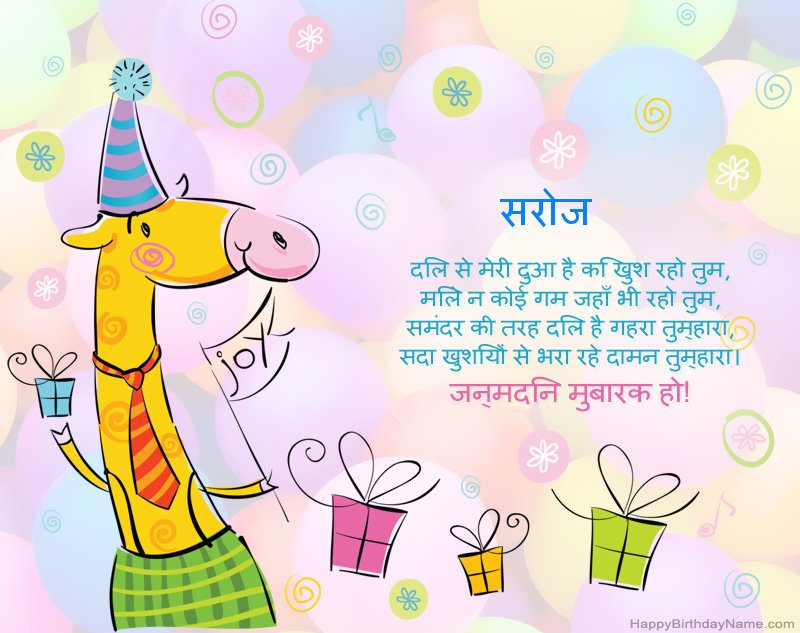 सरोज
दिल से मेरी दुआ है कि खुश रहो तुम,
मिले न कोई गम जहाँ भी रहो तुम,
समंदर की तरह दिल है गहरा तुम्हारा,
सदा खुशियों से भरा रहे दामन तुम्हारा।
जन्मदिन मुबारक हो!
joy
HappyBirthdayName.com